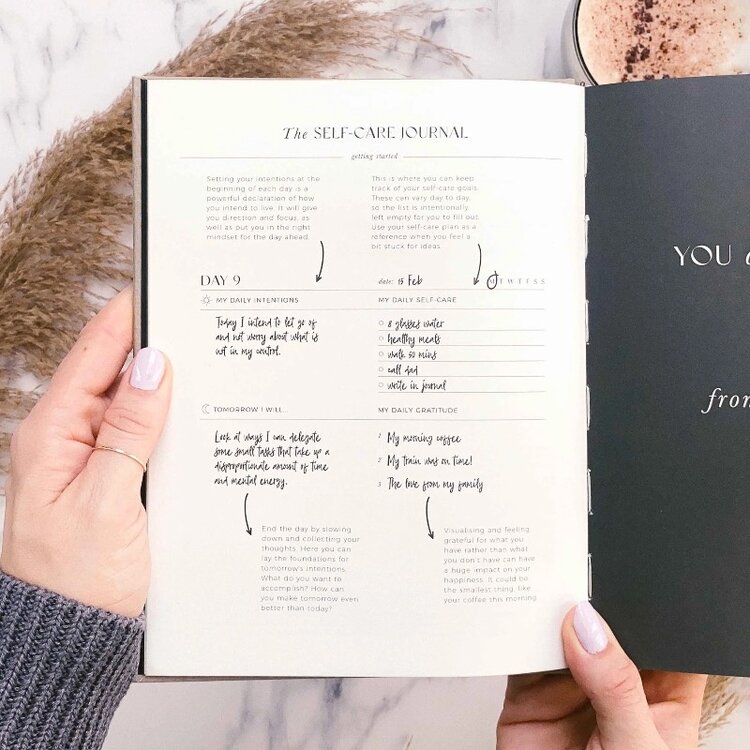 The SELF-CARE JOURNAL
getting started
Setting your intentions at the
beginning of each day is a
powerful declaration of how
you intend to live. It will give
you direction and focus, as
well as put you in the right
mindset for the day ahead.
This is where you can keep
track of your self-care goals.
These can vary day to day,
so the list is intentionally
left empty for you to fill out.
Use your self-care plan as a
reference when you feel a
bit stuck for ideas.
DAY 9
date: 15 Feb M T W T F S S
MY DAILY INTENTIONS
Today I intend to let go of
and not worry about what is
not in my control.
MY DAILY SELF-CARE
8 glasses water
healthy meals
walk 30 mins
call dad
write in journal
TOMORROW I WILL...
Look at ways I can delegate
some small tasks that take up a
disproportionate amount of time
and mental energy.
MY DAILY GRATITUDE
1 My morning coffee
2 My train was on time!
3 The love from my family
End the day by slowing
down and collecting your
thoughts. Here you can
lay the foundations for
tomorrow's intentions.
What do you want to
accomplish? How can
you make tomorrow even
better than today?
Visualising and feeling
grateful for what you
have rather than what
you don't have can have
a huge impact on your
happiness. It could be
the smallest thing, like
your coffee this morning.
YOU